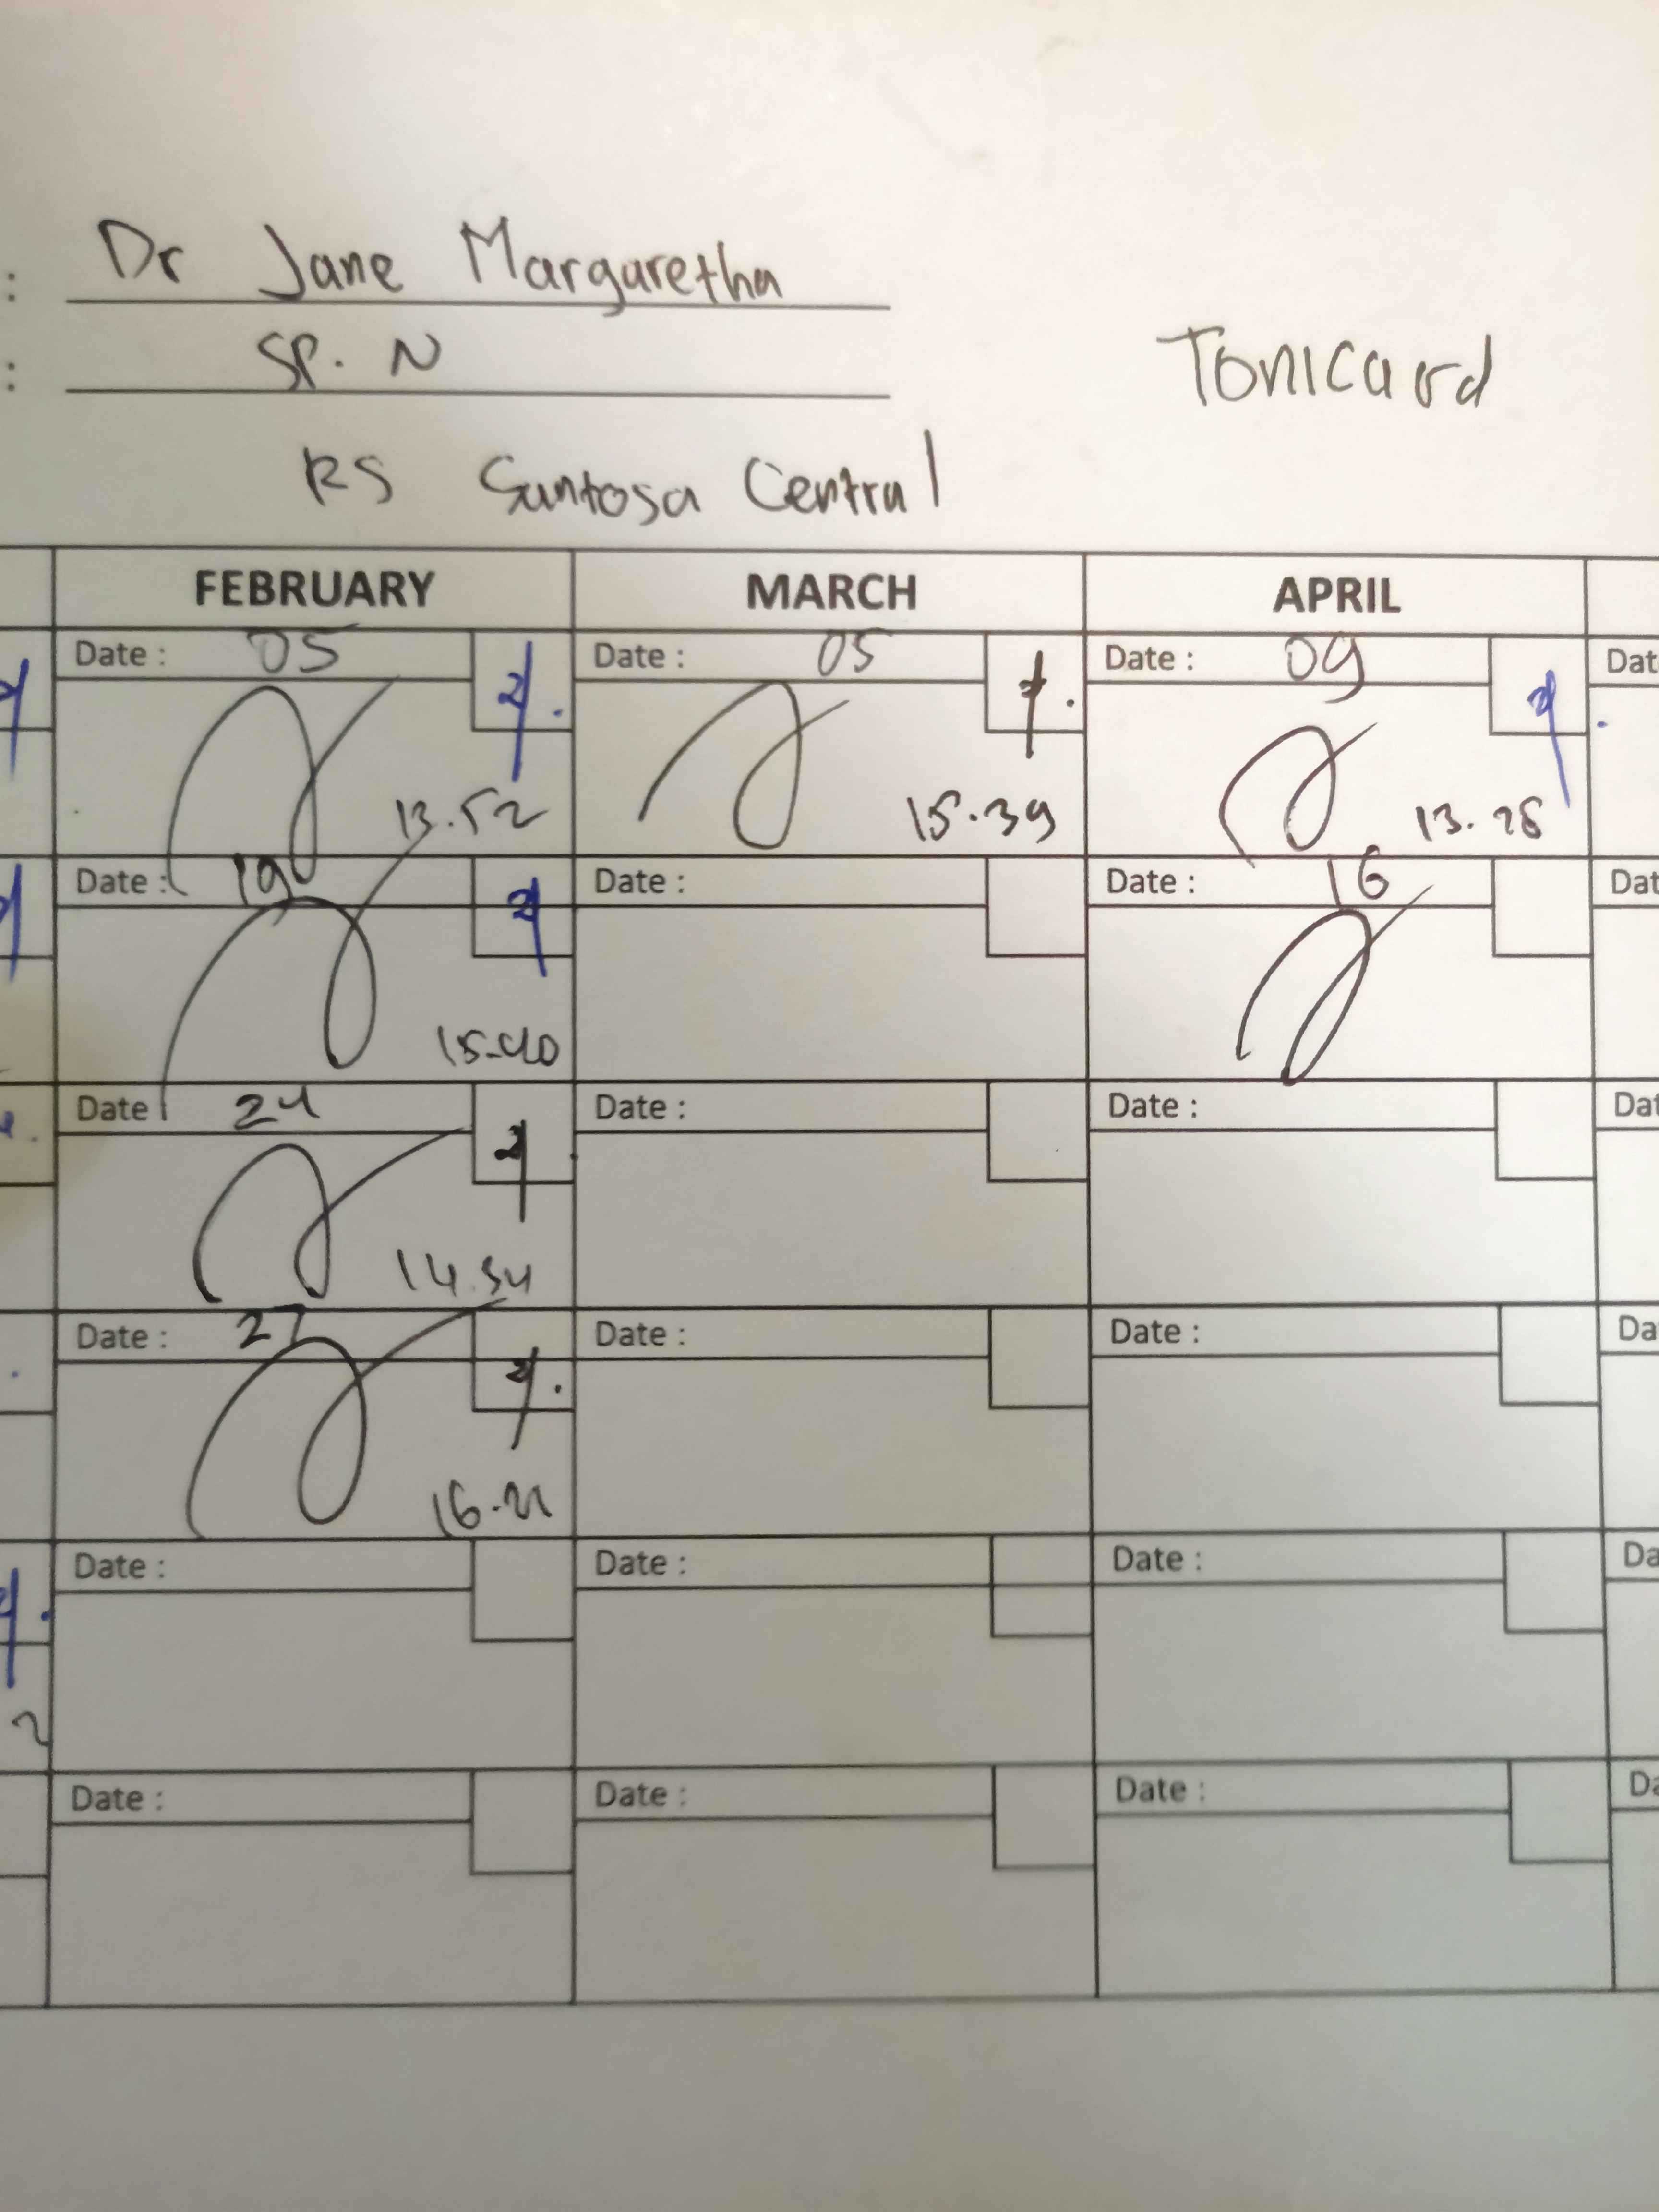 : Dr Jane Margaretha
: SP. N
Tonicard
RS Santosa Central
FEBRUARY MARCH APRIL
Date : 05 Date : 05 Date : 09 Dat
13.52 15.39 13.28
Date : 19 Date : Date : 16 Dat
15.40
Date : 24 Date : Date : Dat
14.54
Date : 27 Date : Date : Da
16.21
Date : Date : Date : Da
2
Date : Date : Date : Da